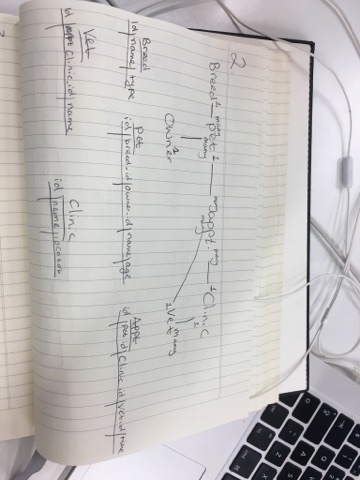 2
Breed 1 many pet 1 many appt. many 1 Clinic
many many 1
1 many
Owner 1 Vet many
Breed
id|name|type
Pet
id|breed.id|owner.id|name|age
Appt
id|pet.id|Clinic.id|vet.id|time
Vet
id|appt|Clinic.id|name
Clinic
id|name|location